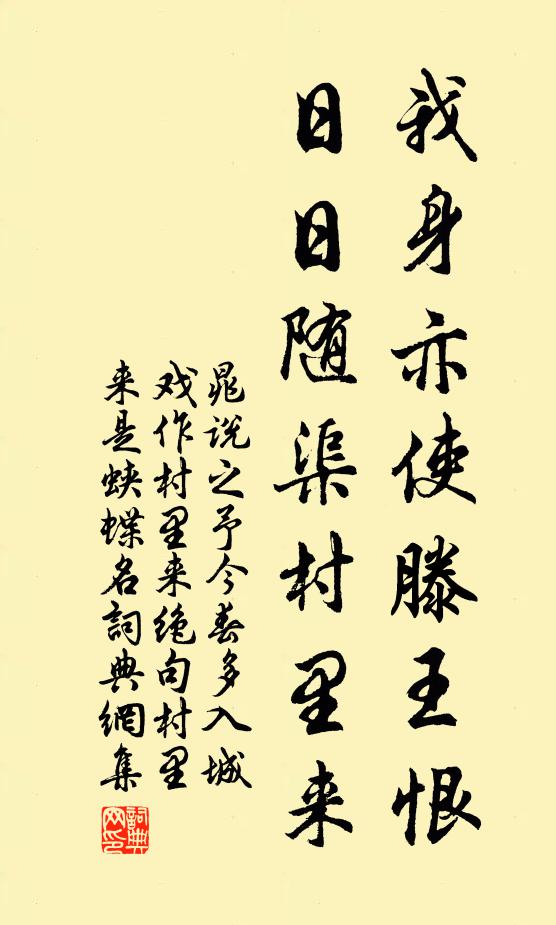 我身亦使滕王恨
日日随渠村里来
晁说之予今春多入城
戏作村里来绝句村里
来是蛱蝶名詞典網集
詞典网印